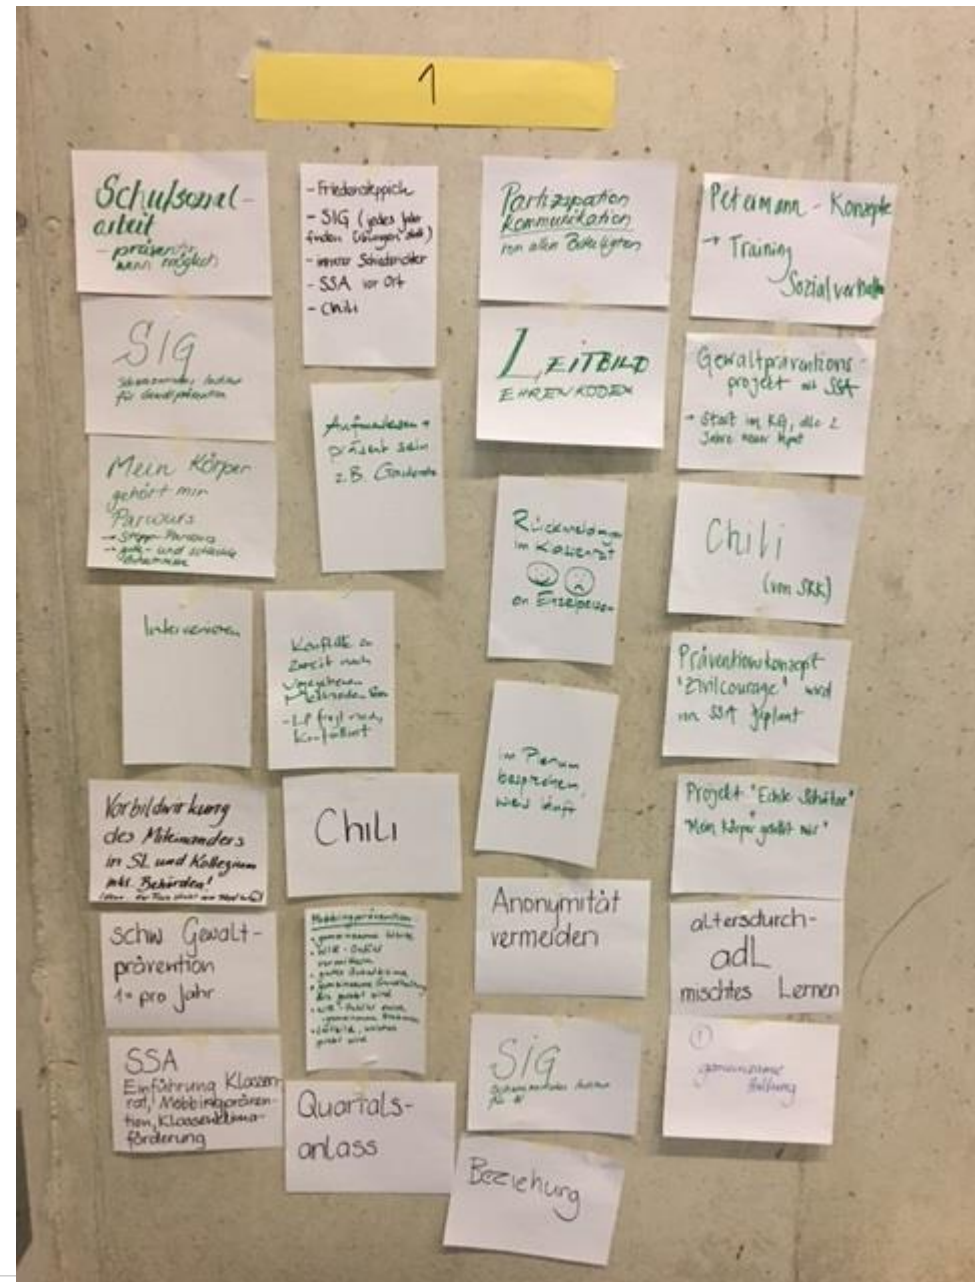 1
Schulsozial-
arbeit
- präventiv
wenn möglich
SIG
Schweizerisches Institut
für Gewaltprävention
Mein Körper
gehört mir
Parcours
→ Stopp-Parcours
→ gute- und schlechte
Intervenieren
Vorbildwirkung
des Miteinanders
in SL und Kollegium
inkl. Behörden!
schw Gewalt-
prävention
1x pro Jahr
SSA
Einführung Klassen-
rat, Mobbingpräven-
tion, Klassenklima-
förderung
- Friedensteppich
- SIG (jedes Jahr
finden Übungen statt)
- SSA vor Ort
- Chili
Aufmerksam +
präsent sein
z.B. Garderobe
Konflikte zu
Zweit nach
Chili
Mobbingprävention
Quartals-
anlass
Partizipation
Kommunikation
von allen Beteiligten
LEITBILD
EHRENKODEX
Rückmeldung
im Klassenrat
an Einzelperson
im Plenum
besprechen,
was läuft
Anonymität
vermeiden
SIG
Schweizerisches Institut
für G
Beziehung
Petermann - Konzepte
→ Training
Sozialverhalten
Gewaltpräventions-
projekt mit SSA
→ Start im KG, alle 2
Jahre neuer Input
Chili
(vom SRK)
Präventionskonzept
"Zivilcourage" wird
von SSA geplant
Projekt "Echte Schätze"
"Mein Körper gehört mir"
altersdurch-
adL
mischtes Lernen
!
gemeinsame
Haltung